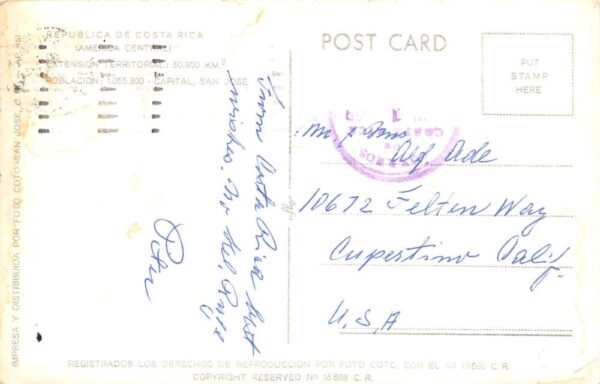 REPUBLICA DE COSTA RICA
(AMERICA CENTRAL)
EXTENSION TERRITORIAL: 50,900 KM2
POBLACION: 1,055,300 - CAPITAL, SAN JOSE
IMPRESA Y DISTRIBUIDA POR FOTO COTO SAN JOSE, C.
From Costa Rica best
wishes.
Peter
POST CARD
PUT
STAMP
HERE
Mr & Mrs
Alf. Ade
10672 Felten Way
Cupertino Calif
U.S.A
REGISTRADOS LOS DERECHOS DE REPRODUCCION POR FOTO COTO, CON EL Nº 15668 C. R.
COPYRIGHT RESERVED Nº 15668 C. R.